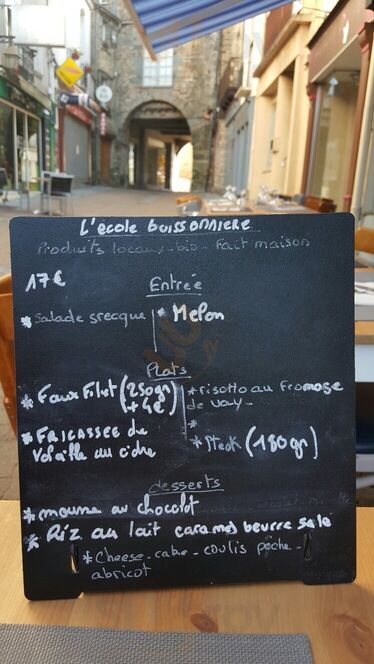 L'école buissonniere
Produits locaux - bio - Fait maison
17€
Entrée
* Salade grecque * Melon
Plats
* Faux Filet (250gr + 4€)
* Fricassée de
volaille au cidre
* risotto au fromage
de
*
* Steak (180gr)
desserts
* mousse au chocolat
* Riz au lait caramel beurre salé
* Cheese-cake - coulis pêche -
abricot